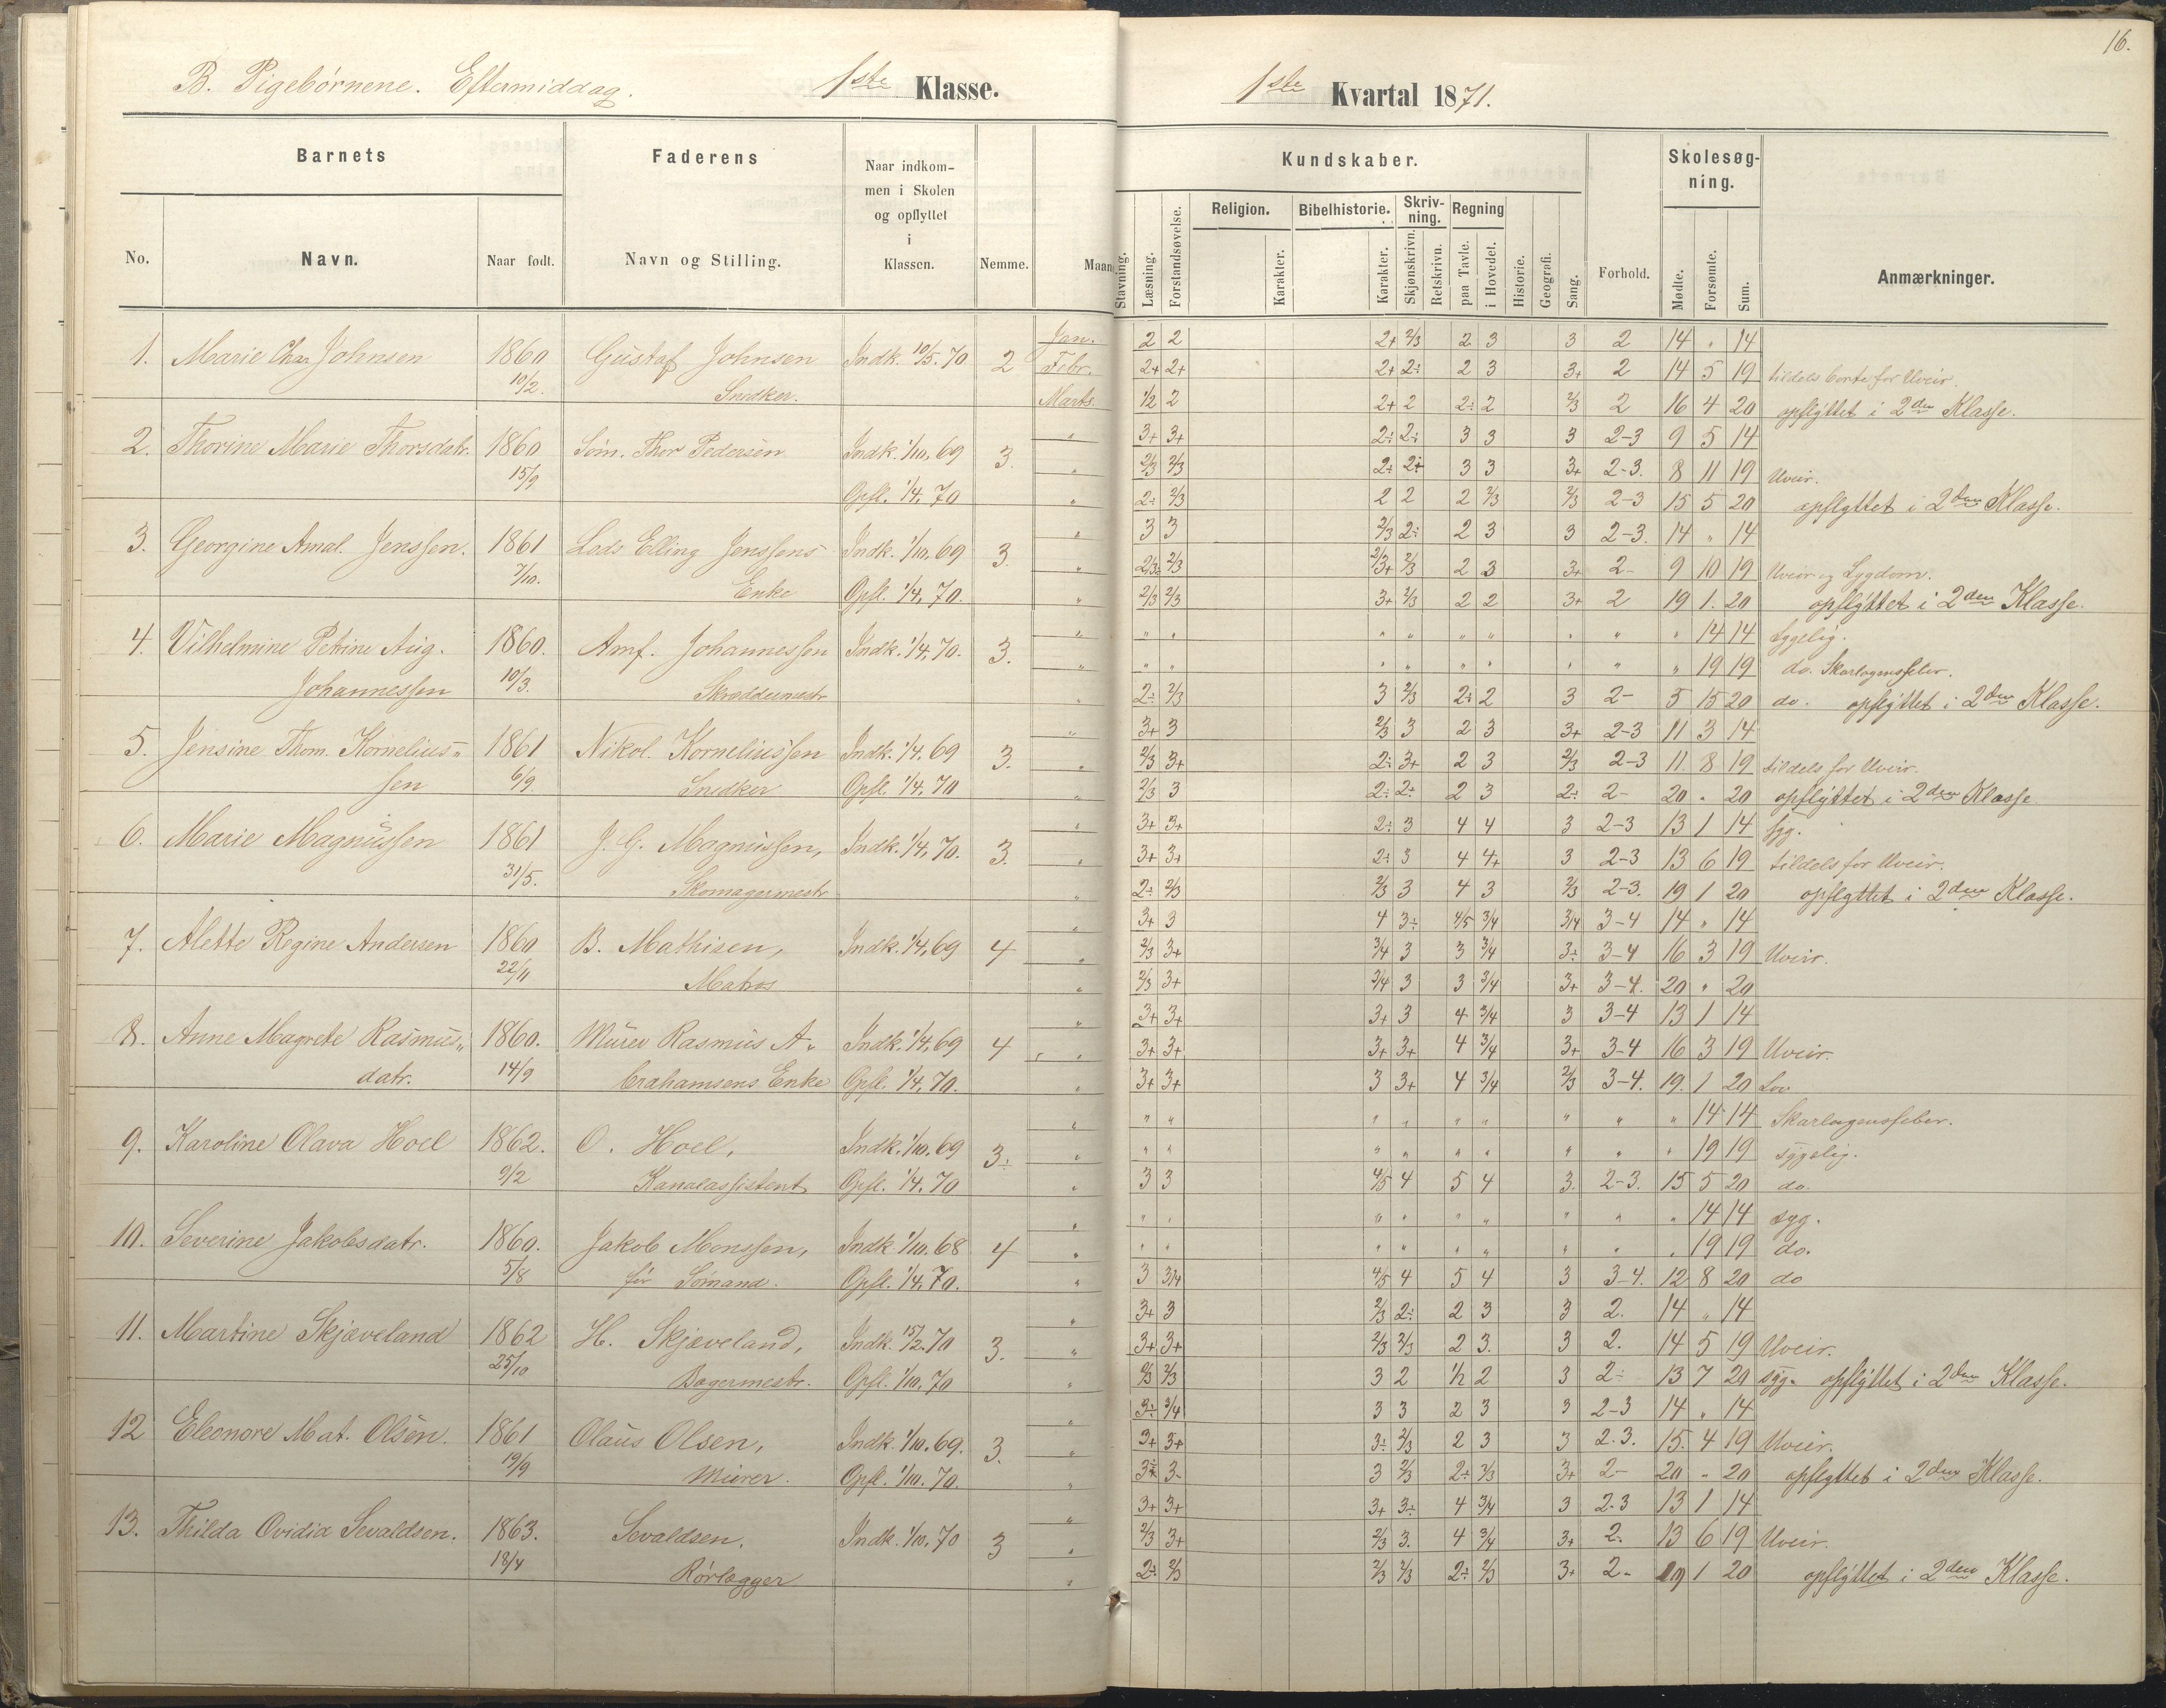 16.
B. Pigebörnene. Eftermiddag. 1ste Klasse. 1ste Kvartal 1871.
Barnets Faderens Naar indkommen i Skolen og opflyttet i Klassen. Nemme. Kundskaber. Skolesøgning.
No. Navn. Naar født. Navn og Stilling. Stavning. Læsning. Forstandsøvelse. Religion. Karakter. Bibelhistorie. Karakter. Skrivning. Skjønskrivn. Retskrivn. Regning paa Tavle. i Hovedet. Historie. Geografi. Sang. Forhold. Mødte. Forsømte. Sum. Anmærkninger.
1. Marie Char. Johnsen 1860 Gustaf Johnsen Indk. 10/5. 70 2 Jan. 2 2 2+ 2/3 2 3 3 2 14 " 14
10/2. Snidker. Febr. 2+ 2+ 2+ 2÷ 2 3 3+ 2 14 5 19 tildels borte for Uveir.
Marts. 1/2 2 2+ 2 2÷ 2 2/3 2 16 4 20 opflyttet i 2den Klasse.
2. Thorine Marie Thorsdatr. 1860 Søm. Thor Pedersen Indk. 1/10. 69 3. " 3+ 3+ 2÷ 2÷ 3 3 3 2-3 9 5 14
15/9 " 2/3 2/3 2÷ 2+ 3 3 3+ 2-3. 8 11 19 Uveir.
Opfl. 1/4. 70 " 2÷ 2/3 2 2 2 2/3 2/3 2-3 15 5 20 opflyttet i 2den Klasse.
3. Georgine Amal. Jenssen. 1861 Lods Elling Jenssens Indk. 1/10. 69 3. " 3 3 2/3 2÷ 2 3 3 2-3. 14 " 14
7/10. Enke " 2/3÷ 2/3 2/3+ 2/3 2 3 3+ 2- 9 10 19 Uveir og Sygdom.
Opfl. 1/4. 70. " 2/3 2/3 3+ 2/3 2 2 3+ 2 19 1. 20 opflyttet i 2den Klasse.
4. Vilhelmine Petrine Aug. 1860. Amf. Johannessen Indk. 1/4. 70. 3. " " " " " " " " " " 14 14 Sygelig.
Johannessen 10/3. Skræddermestr " " " " " " " " " " 19 19 do. Skarlagensfeber.
" 2÷ 2/3 3 2/3 2÷ 2 3 2- 5 15 20 do. opflyttet i 2den Klasse.
5. Jensine Thom. Kornelius- 1861 Nikol. Korneliussen Indk. 1/4. 69 3. " 3+ 3 2/3 3 2 3 3+ 2-3 11 3 14
sen 6/9. Snidker Opfl. 1/4. 70 " 2/3 3+ 2÷ 3+ 2 3 2/3 2-3 11. 8 19 tildels for Uveir.
" 2/3 3 2÷ 2÷ 2 3 2÷ 2- 20 " 20 opflyttet i 2den Klasse
6. Marie Magnussen 1861 J. G. Magnussen, Indk. 1/4. 70. 3. " 3+ 3+ 2÷ 3 4 4 3 2-3 13 1 14 syg.
31/5. Skomagermestr " 3+ 3+ 2÷ 3 4 4+ 3 2-3 13 6 19 tildels for Uveir.
" 2÷ 2/3 2/3 3 4 3 2/3 2-3. 19 1 20 opflyttet i 2den Klasse.
7. Alette Regine Andersen 1860 B. Mathisen, Indk. 1/4. 69 4 " 3+ 3 4 3÷ 4/5 3/4 3/4 3-4 14 " 14
22/11 Matros " 2/3 3+ 3/4 3 3 3/4 3÷ 3-4 16 3 19 Uveir.
" 2/3 3+ 3/4 3 3 3/4 3+ 3-4. 20 " 20
8. Anne Magrete Rasmus- 1860. Murer Rasmus A- Indk. 1/4. 69 4 " 3+ 3+ 3+ 3 4 3/4 3 3-4 13 1 14
datr. 14/9 brahamsens Enke Opfl. 1/4. 70. " 3+ 3+ 3+ 3+ 4 3/4 3+ 3-4 16 3 19 Uveir.
" 3+ 3+ 3 3+ 4 3/4 2/3 3-4. 19. 1 20 Lov
9. Karoline Olava Hoel 1862. O. Hoel, Indk. 1/10. 69 3÷ " " " " " " " " " " 14 14 Skarlagensfeber.
9/2 Kanalassistent Opfl. 1/4. 70 " " " " " " " " " " 19 19 sygelig.
" 3 3 4/5 4 5 4 3. 2-3. 15 5 20 do.
10. Severine Jakobsdatr. 1860. Jakob Monssen, Indk. 1/10. 68 4 " " " " " " " " " " 14 14 syg.
5/8 før Sömand. Opfl. 1/4. 70. " " " " " " " " " " 19 19 do.
" 3 3/4 4/5 4 5 4 3 3-4. 12 8 20 do
11. Martine Skjæveland 1862 H. Skjæveland, Indk. 15/2. 70 3. " 3+ 3 2/3 2÷ 2 3 3 2. 14 " 14
25/10 Bagermestr. Opfl. 1/10. 70 " 3+ 3+ 2/3 2/3 2 3. 3 2. 14 5 19 Uveir.
" 2/3 2/3 3 2 1/2 2 3 2÷ 13 7 20 syg. opflyttet i 2den Klasse.
12 Eleonore Mat. Olsen. 1861 Olaus Olsen, Indk. 1/10. 69. 3. " 3÷ 3/4 3 3 2 3 3 2-3 14 " 14
19/9 Murer. Opfl. 1/10. 70. " 3+ 3+ 3÷ 2/3 2 3 3 2.3. 15. 4 19 Uveir.
" 3+ 3- 3 2/3 2÷ 2/3 3+ 2- 20 - 20 opflyttet i 2den Klasse.
13. Thilda Ovidia Sevaldsen. 1863. Sevaldsen. Indk. 1/10. 70 3 " 3+ 3+ 3+ 3÷ 4 3/4 3 2.3 13 1 14
18/4 Rörlægger " 2/3 3+ 2/3 3. 4 3/4 3+ 2. 13 6 19 Uveir.
" 2÷ 2/3 2/3 2/3 2÷ 2/3 3+ 2- 19 1 20 opflyttet i 2den Klasse.